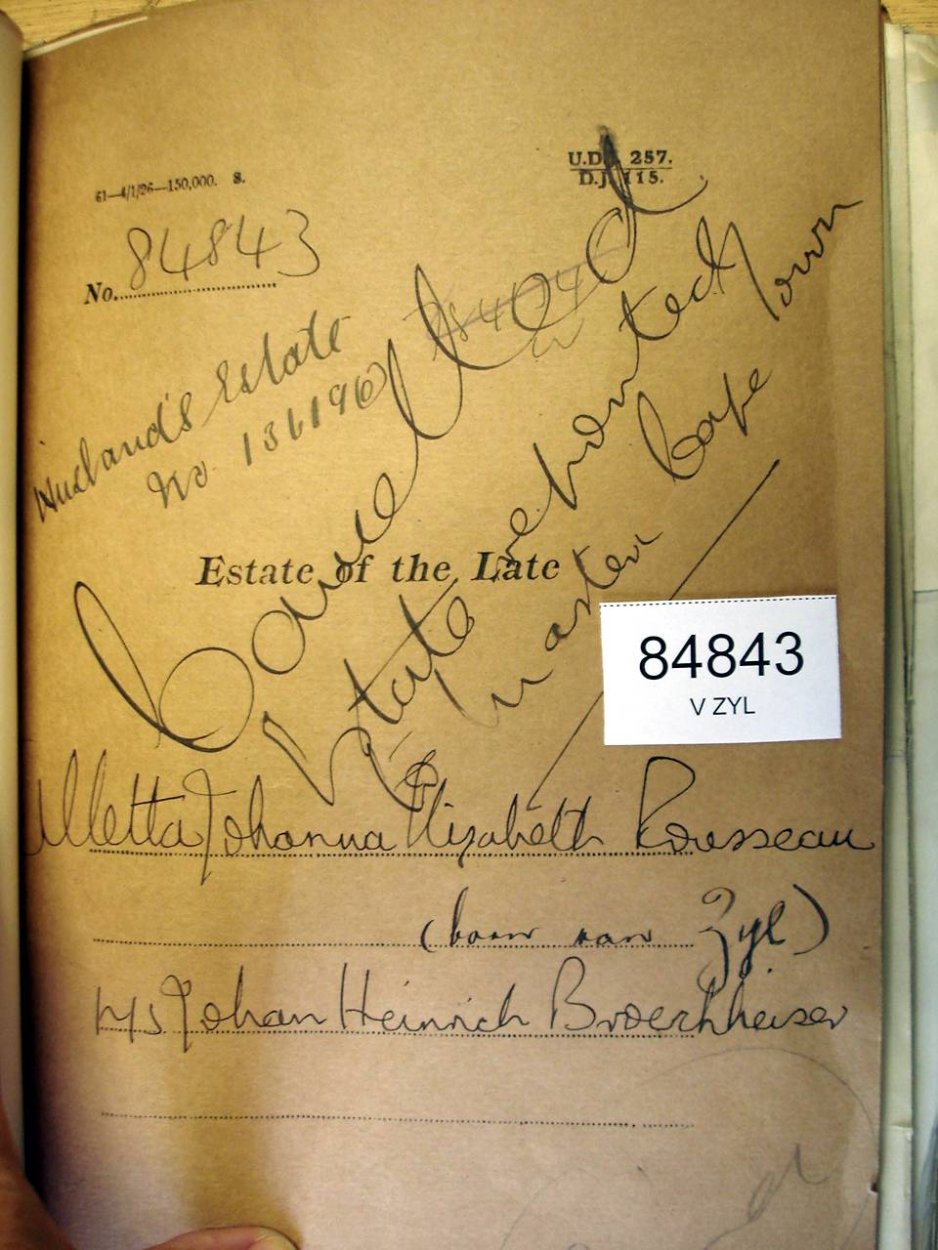 61—4/1/26—150,000. S.
U.D. 257.
D.J. 115.
No. 84843
Husband's Estate
No 136196
Cancelled
Estate reported
to Master Cape Town
Estate of the Late
84843
V ZYL
Aletta Johanna Elizabeth Rousseau
(born van Zyl)
Johan Heinrich Broeckheiser